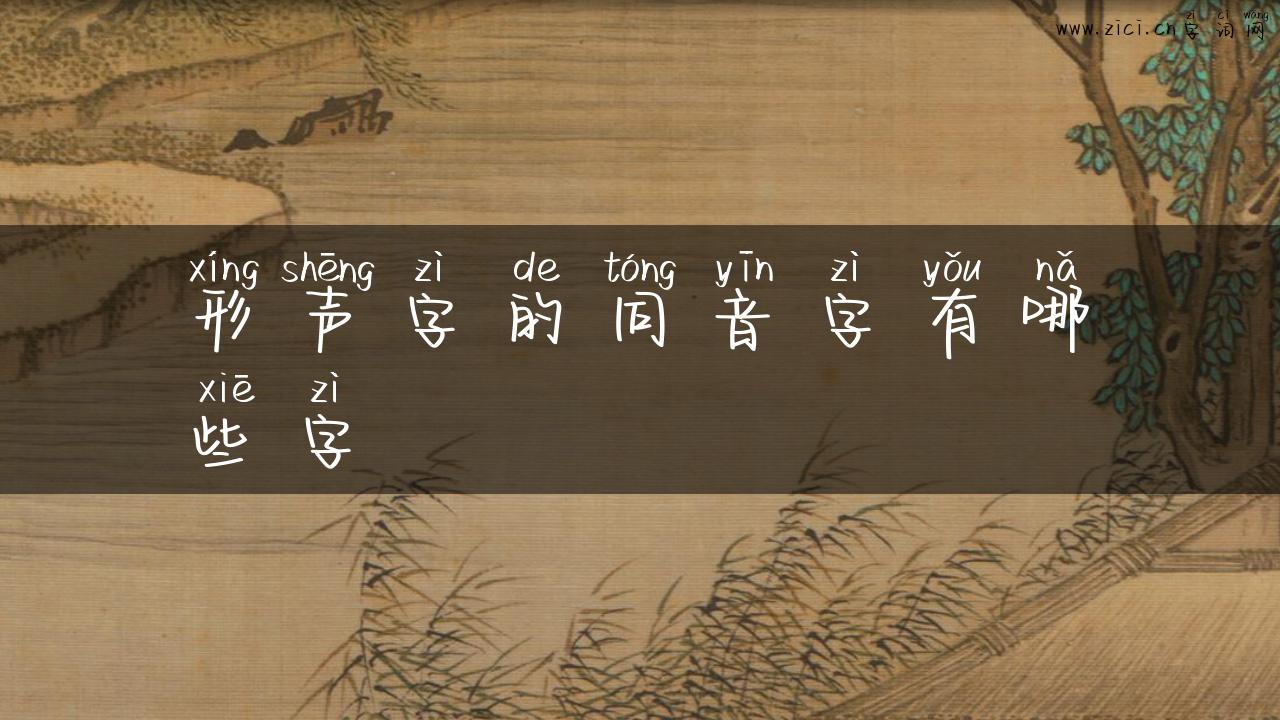 zì cí wǎng
www.zici.cn字词网
xíng shēng zì de tóng yīn zì yǒu nǎ
形声字的同音字有哪
xiē zì
些字